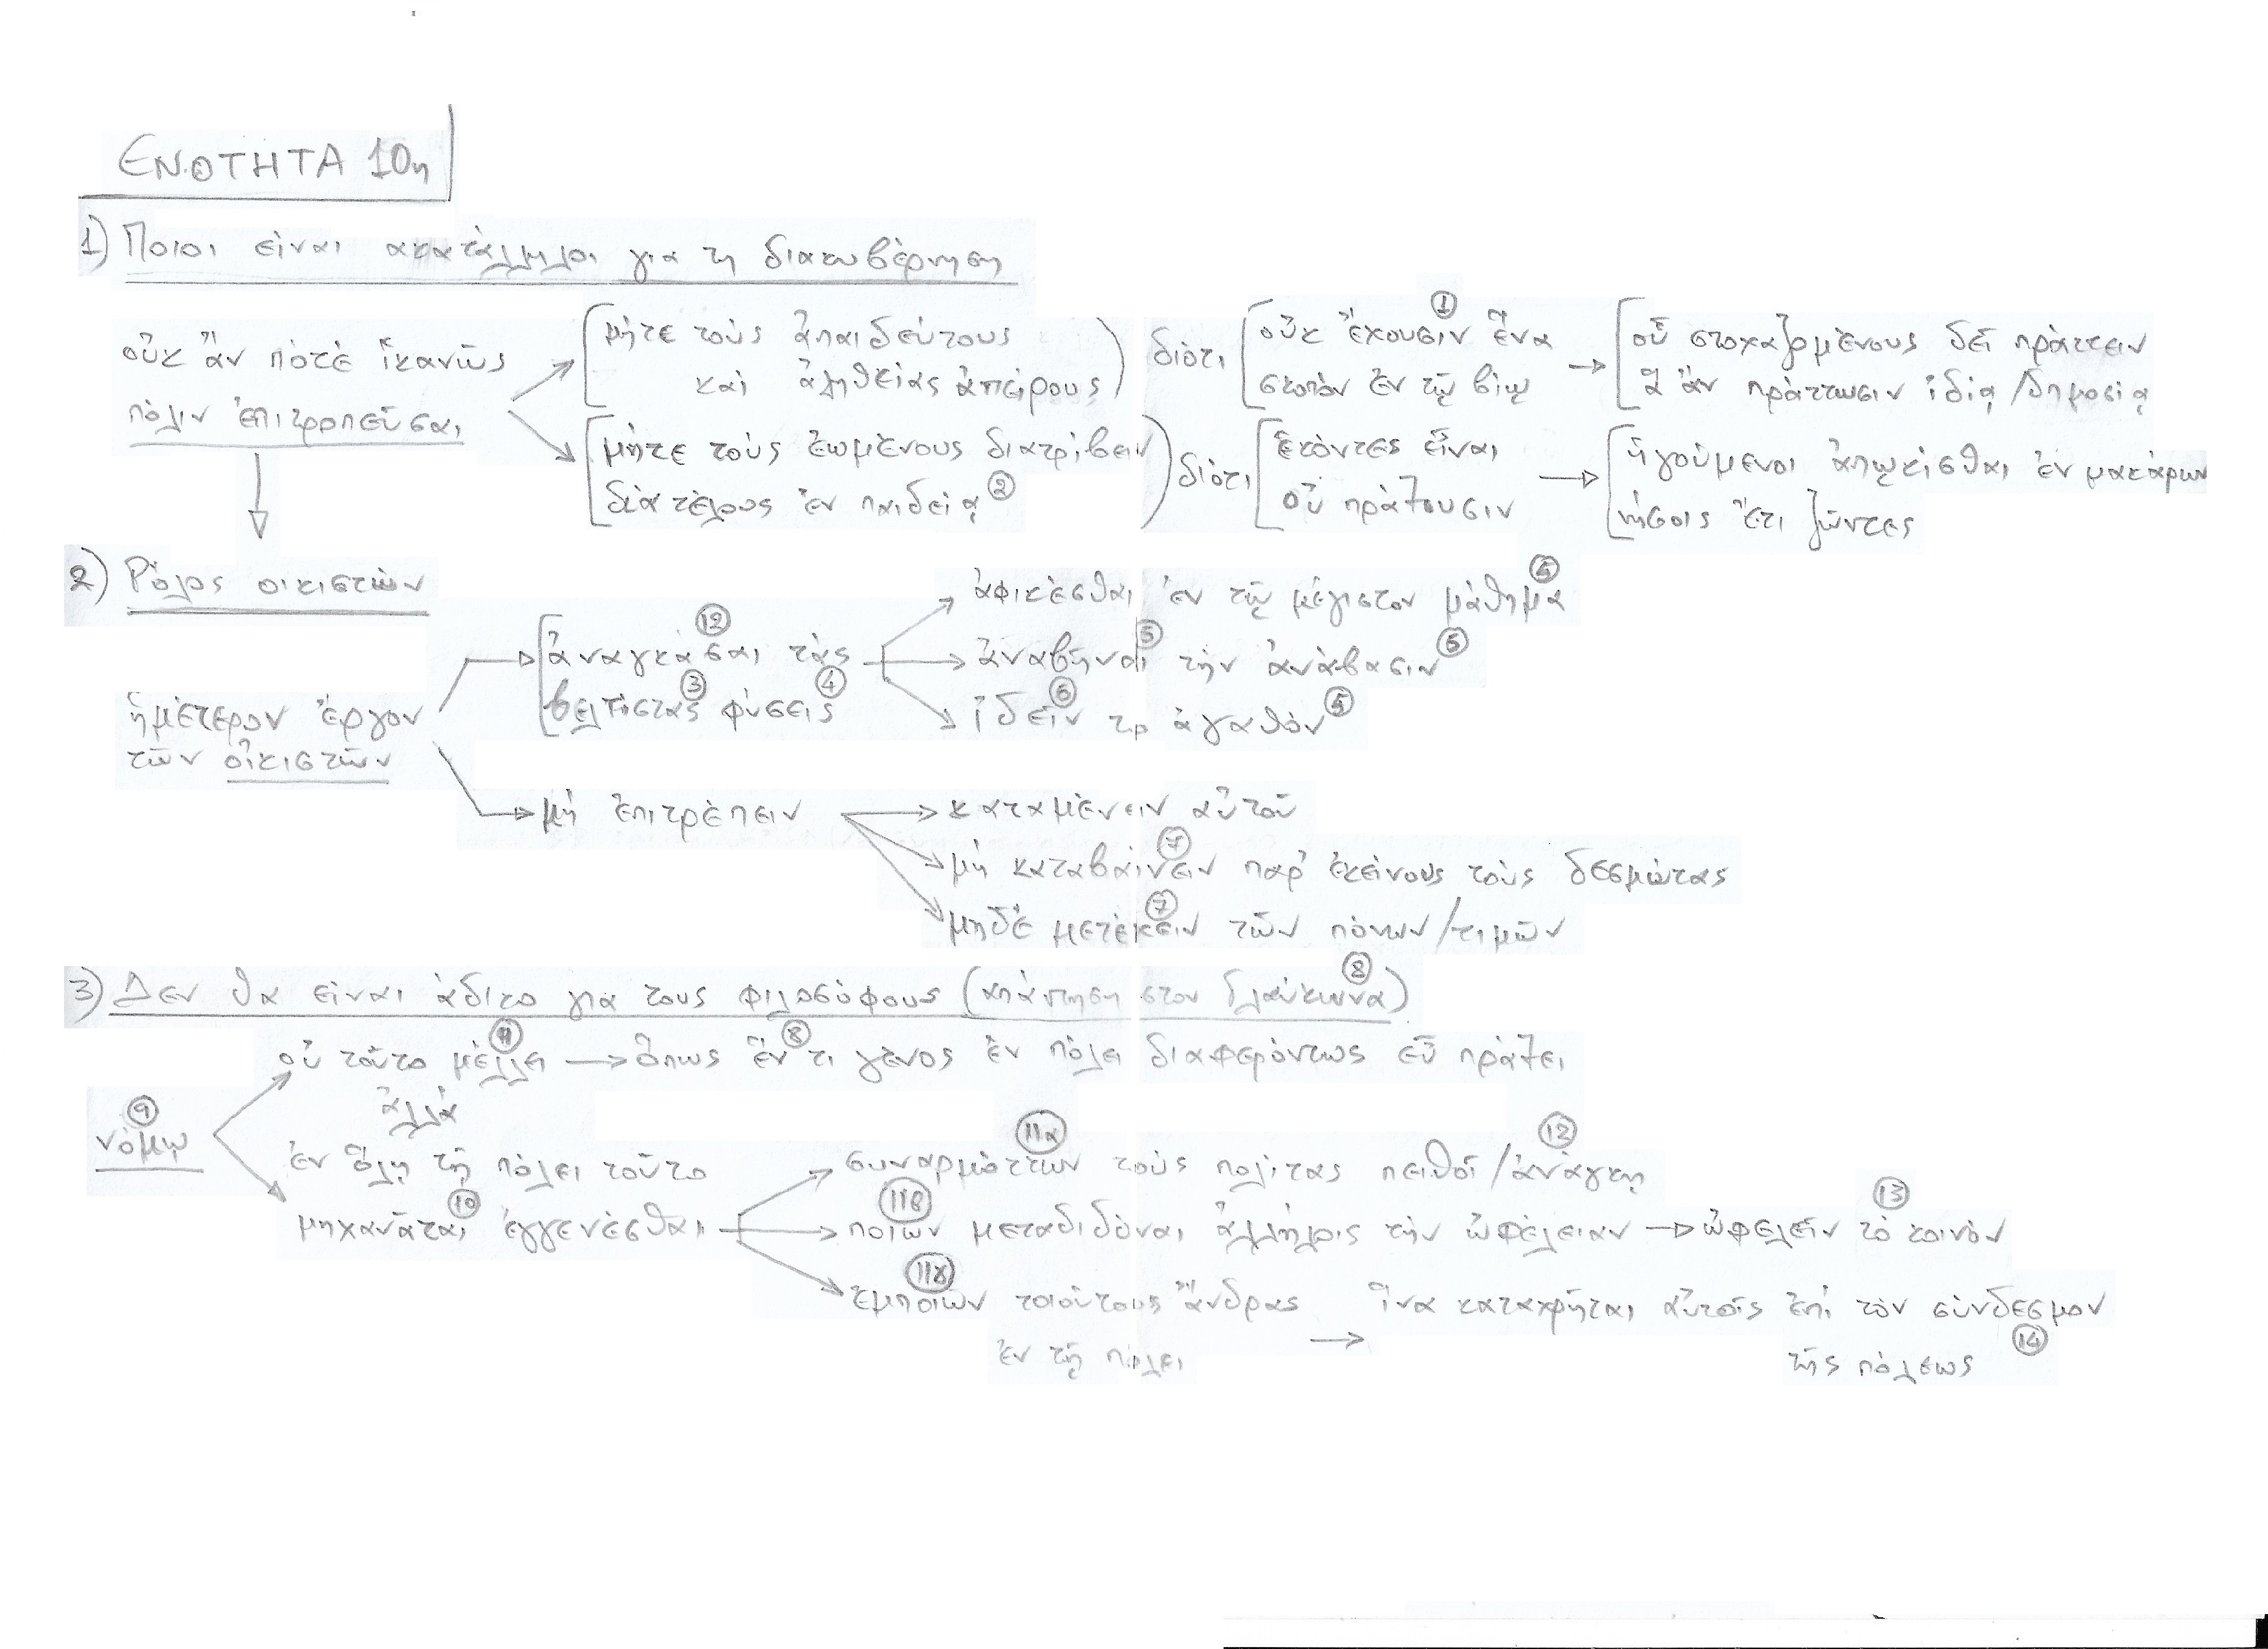 ΕΝΟΤΗΤΑ 10η
1) Ποιοι είναι ακατάλληλοι για τη διακυβέρνηση
οὐκ ἄν πότε ἱκανῶς
πόλιν ἐπιτροπεῦσαι
μήτε τούς ἀπαιδεύτους
καί ἀληθείας ἀπείρους
διότι
οὐκ ἔχουσιν ἕνα ①
σκοπόν ἐν τῷ βίῳ
οὗ στοχαζομένους δεῖ πράττειν
ἅ ἄν πράττωσιν ἰδίᾳ/δημοσίᾳ
μήτε τούς ἐωμένους διατρίβειν
διά τέλους ἐν παιδείᾳ ②
διότι
ἑκόντες εἶναι
οὐ πράξουσιν
ἡγούμενοι ἀπῳκίσθαι ἐν μακάρων
νήσοις ἔτι ζῶντες
2) Ρόλος οικιστών
ἡμέτερον ἔργον
τῶν οἰκιστῶν
ἀναγκάσαι τάς ⑫
βελτίστας φύσεις ③ ④
ἀφικέσθαι ἐν τῷ μέγιστον μάθημα ⑤
ἀναβῆναι τήν ἀνάβασιν ⑤ ⑥
ἰδεῖν το ἀγαθόν ⑥ ⑤
μή ἐπιτρέπειν
καταμένειν αὐτοῦ
μή καταβαίνειν παρ' ἐκείνους τούς δεσμώτας ⑦
μηδέ μετέχειν τῶν πόνων/τιμῶν ⑦
3) Δεν θα είναι άδικο για τους φιλοσόφους (απάντηση στον Γλαύκωνα) ⑧
νόμῳ ⑨
οὐ τοῦτο μέλλει → ὅπως ἕν τι γένος ἐν πόλει διαφερόντως εὖ πράξει ⑧
ἀλλά
ἐν ὅλῃ τῇ πόλει τοῦτο
μηχανᾶται ἐγγενέσθαι ⑩
συναρμόττων τούς πολίτας πειθοῖ/ἀνάγκῃ 11α ⑫
ποιῶν μεταδιδόναι ἀλλήλοις τήν ὠφέλειαν → ὠφελεῖν τό κοινόν 11β ⑬
ἐμποιῶν τοιούτους ἄνδρας 11γ
ἐν τῇ πόλει
→ ἵνα καταχρῆται αὐτοῖς ἐπί τόν σύνδεσμον
τῆς πόλεως ⑭